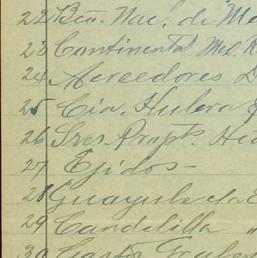 22 Bco. Nac. de Me
23 Continental Med. R
24 Acreedores D
25 Cia. Hulera
26 Sres. Propt. Hda
27 Ejidos
28 Guayule
29 Candelilla "
30 Gastos